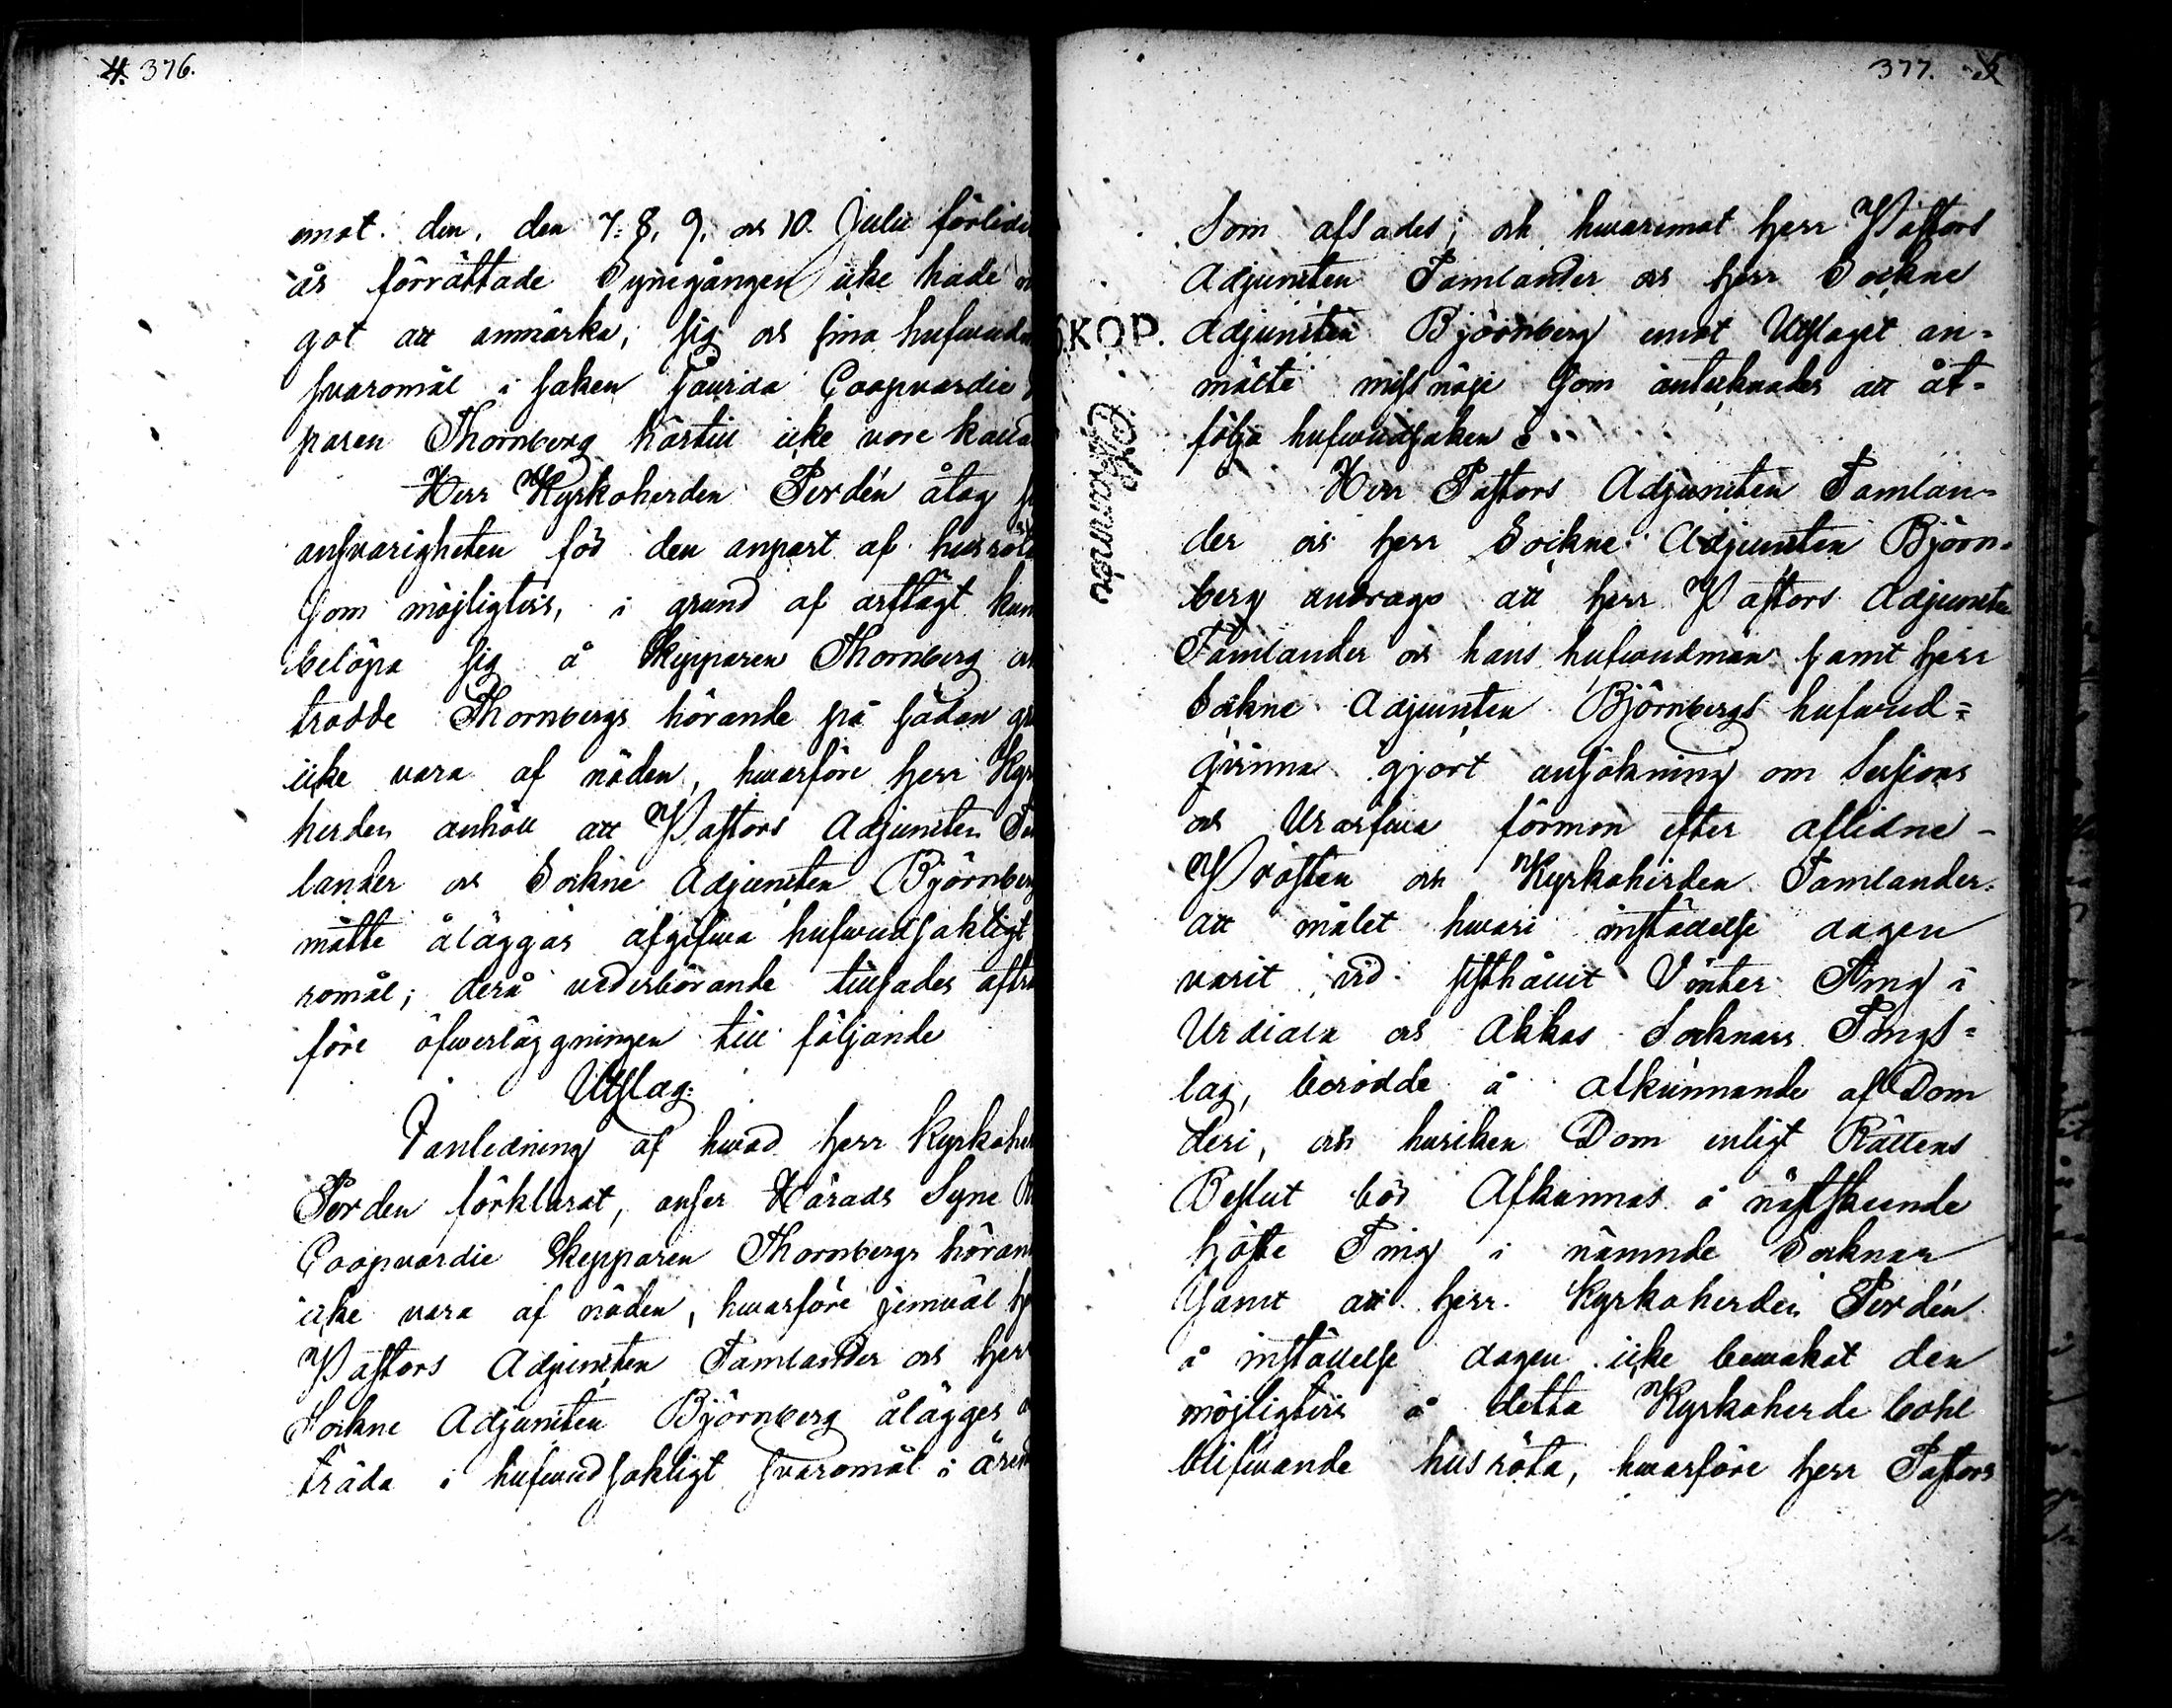 4. 376.
emot den, den 7. 8, 9, och 10. Julii förlide
års förrättade Synegången icke hade
got att anmärka; sig och sina hufvud
svaromål i saken savida Coopvardie
paren Thornberg härtill icke vore kallad
Herr Kyrkoherden Perdén åtog
ansvarigheten för den anpart af husröta
som möjligtvis, i grund af arftägt kun
belöpa sig å Skepparen Thornberg och
trodde Thornbergs hörande på sådan gr
icke vara af nöden, hvarföre herr Kyr
herden anhöll att Pastors Adjuncten Tam
lander och Sockne Adjuncten Björnberg
måtte åläggas afgifva hufvudsakligt
romål; derå vederbörande tillsades aftra
före öfverläggningen till följande
Utslag:
I anledning af hvad herr Kyrkoher
Perden förklarat, anser Härads Syne
Coopvardie Skepparen Thornbergs höran
icke vara af nöden, hvarföre jemväl
Pastors Adjuncten Tamlander och herr
Sockne Adjuncten Björnberg ålägges
träda i hufvudsakligt svaromål i ären
377. 5
Som afsades; och hvaremot herr Pastors
Adjuncten Tamlander och herr Sockne
SKOP. Adjuncten Björnberg emot Utslaget an=
mälte missnöje som antecknades att åt=
följa hufvudsaken.
Herr Pastors Adjuncten Tamlan=
der och herr Sockne Adjuncten Björn=
berg androgo att herr Pastors Adjuncten
Tamlander och hans hufvudmän samt herr
Sockne Adjuncten Björnbergs hufvud=
qvinna gjort ansökning om Cessions
och Urarfva förmon efter aflidne
Prosten och Kyrkoherden Tamlander.
att målet hvari inställelse dagen
varit vid sisthållit Vinter Ting i
Urdiala och Akkas Socknars Tings=
lag, berodde å afkunnande af Dom
deri, och hvilken Dom enligt Rättens
Beslut bör Afkunnas å nästskeende
höste Ting i nämnde Socknar
Samt att herr Kyrkoherden Perdén
å inställelse dagen icke bevakat den
möjligtvis å detta Kyrkoherde bohl
blifvande husröta, hvarföre herr Pastors